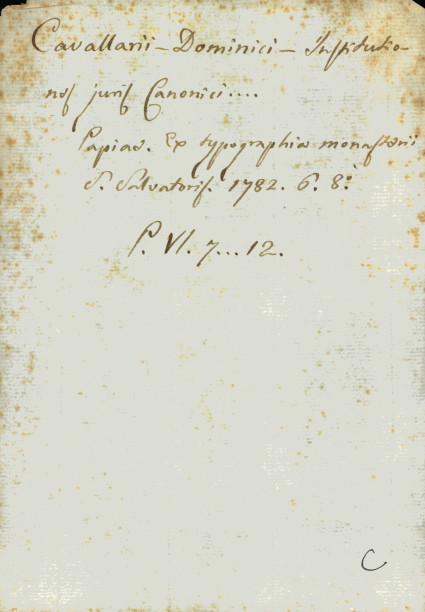 Cavallarii - Dominici - Institutio-
nes juris Canonici....
Papiae. Ex typographia monasterii
S. Salvatoris. 1782. 6. 8.o
P. VI. 7...12.
C